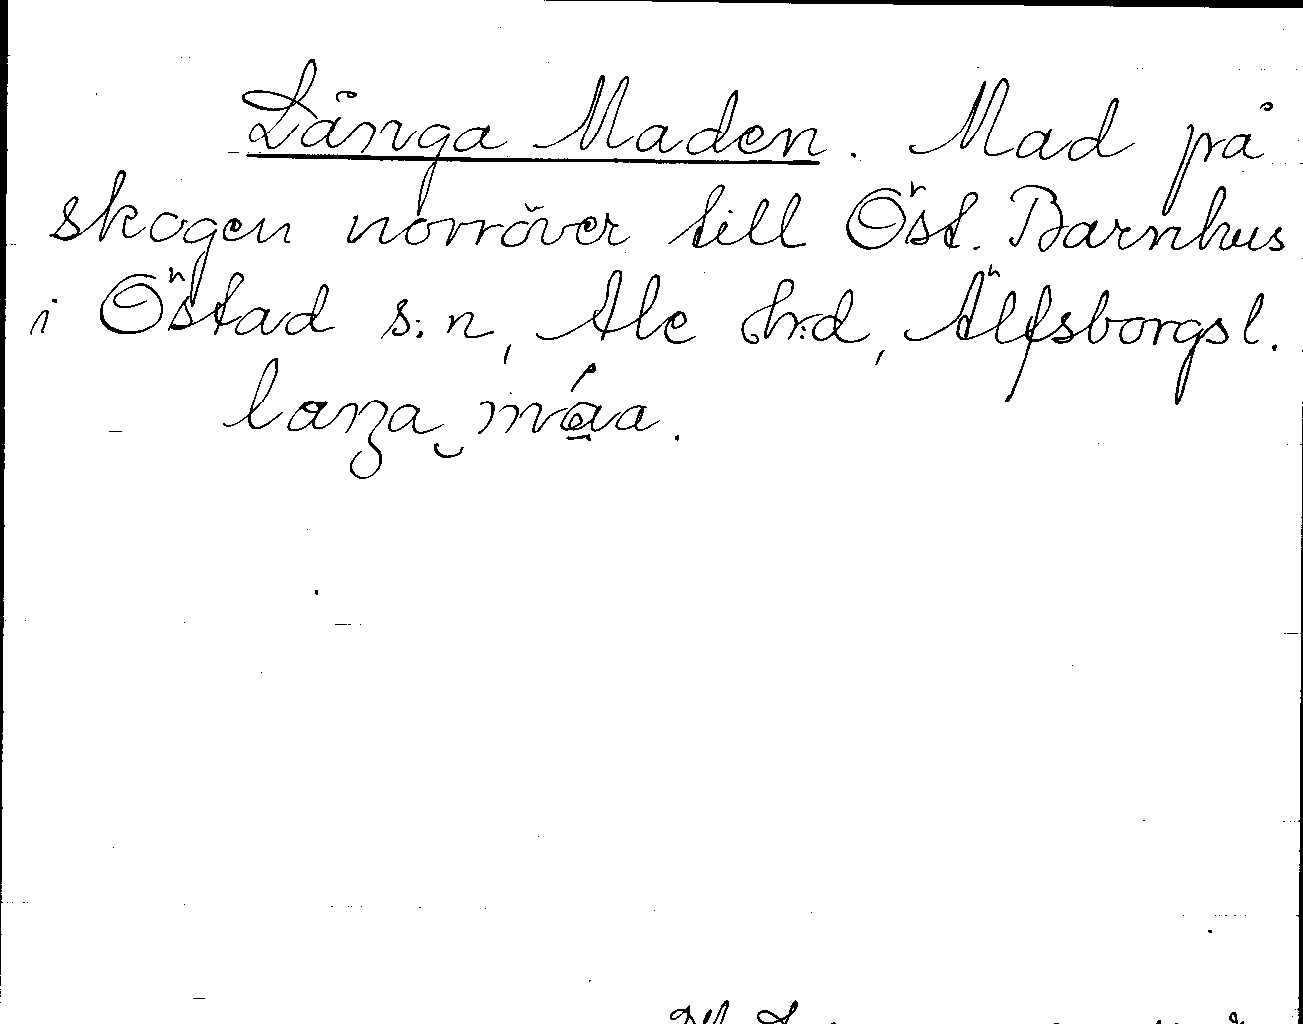 Långa Maden. Mad på
skogen norröver till Öst. Barnhus
i Östad s:n, Ale h:d, Älfsborgs l.